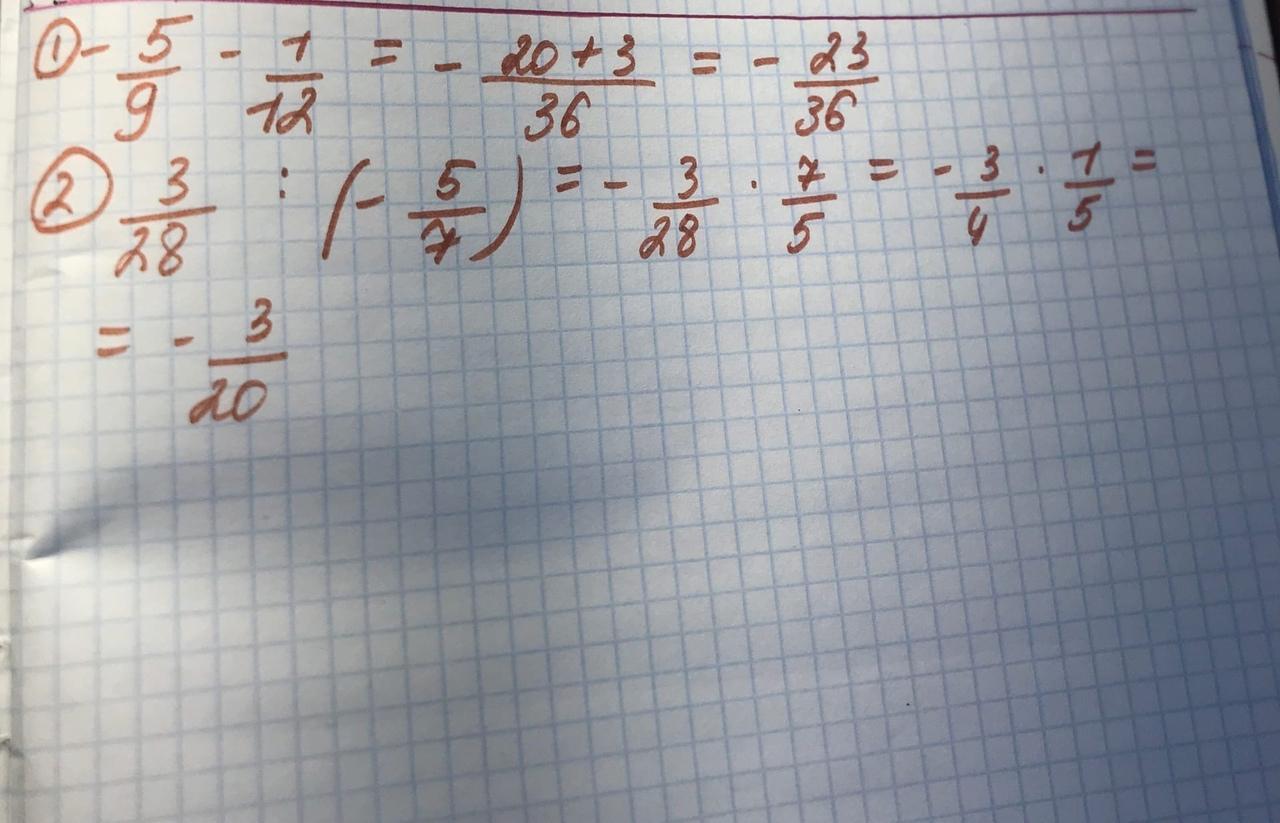 ① - 5/9 - 1/12 = - (20 + 3)/36 = - 23/36
② 3/28 : (- 5/7) = - 3/28 · 7/5 = - 3/4 · 1/5 =
= - 3/20